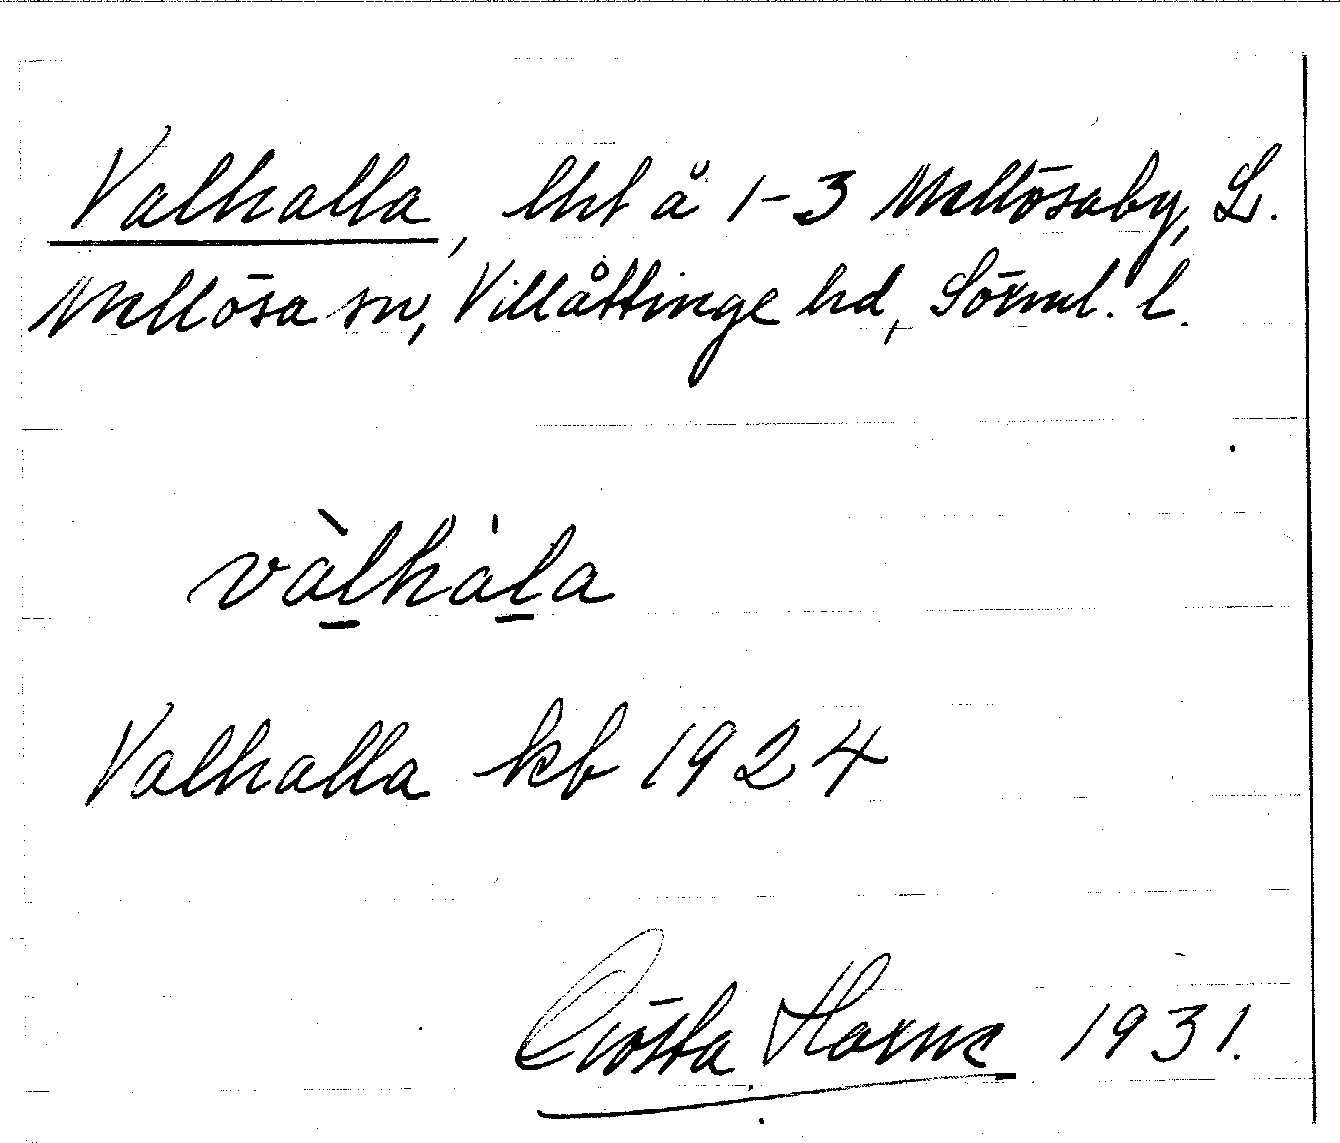 Valhalla, lht å 1-3 Mellösaby, L.
Mellösa sn, Villåttinge hd, Sörml. l.
vàl̲hàl̲a
Valhalla kb 1924
Gösta Horne 1931.